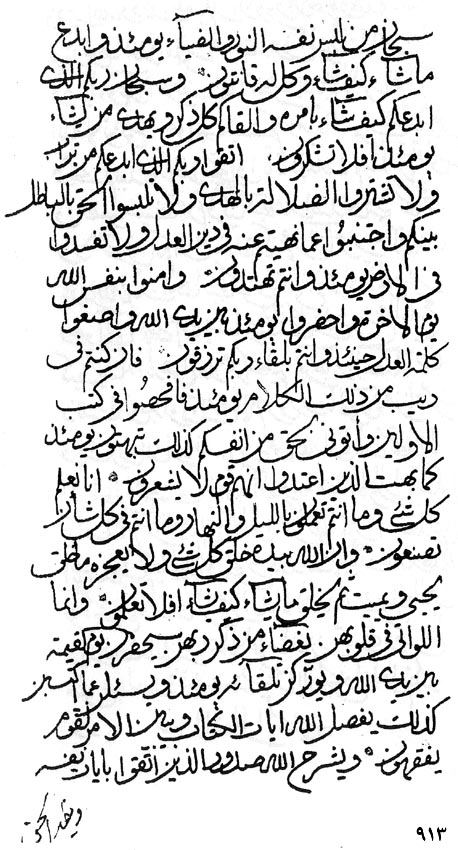 سبحان من يلبس نفسه النور والضياء يومئذ وابدع
ماشاء كيف شاء وكل له قانتون وسبحان ربكم الذي
ابدعكم كيف شاء بامره والقاكم كل ذكر ويهدي من يشاء
يومئذ افلا تشكرون اتقوا ربكم الذي ابدعكم من تراب
ولا تشتروا الضلالة بالهدى ولا تلبسوا الحق بالباطل
بينكم واجتنبوا عما نهيتم عنه في دين العدل ولا تفسدوا
في الارض يومئذ وانتم تهتدون وامنوا بنفس الله
يوم الاخرة واحضروا يومئذ بين يدي الله واصغوا
كلمة العدل حينئذ وانتم بلقاء ربكم ترزقون فان كنتم في
ريب من ذلك الكلام يومئذ فافحصوا في كتب
الاولين وأتوني بحق من انفسكم كذلك تبهتون يومئذ
كما بهت الذين اعتدوا انهم قوم لا يشعرون انا نعلم
كل شئ وما انتم تعملون بالليل والنهار وما انتم في كل شأن
تصنعون وان الله بيده خلق كل شئ ولا يعجزه من خلق
يحيي ويميت ثم يخلق ما يشاء كيف يشاء افلا تعلمون وانما
اللواتي في قلوبهن بغضاء من ذكر ربهن سيحضرن يوم القيمة
بين يدي الله ويوركن بلقائه يومئذ ويسئلن عما اكتسبن
كذلك يفصل الله ايات الكتاب ويبين الامر لقوم
يفقهون ويشرح الله صدور الذين اتقوا بايات نفسه
٩١٣